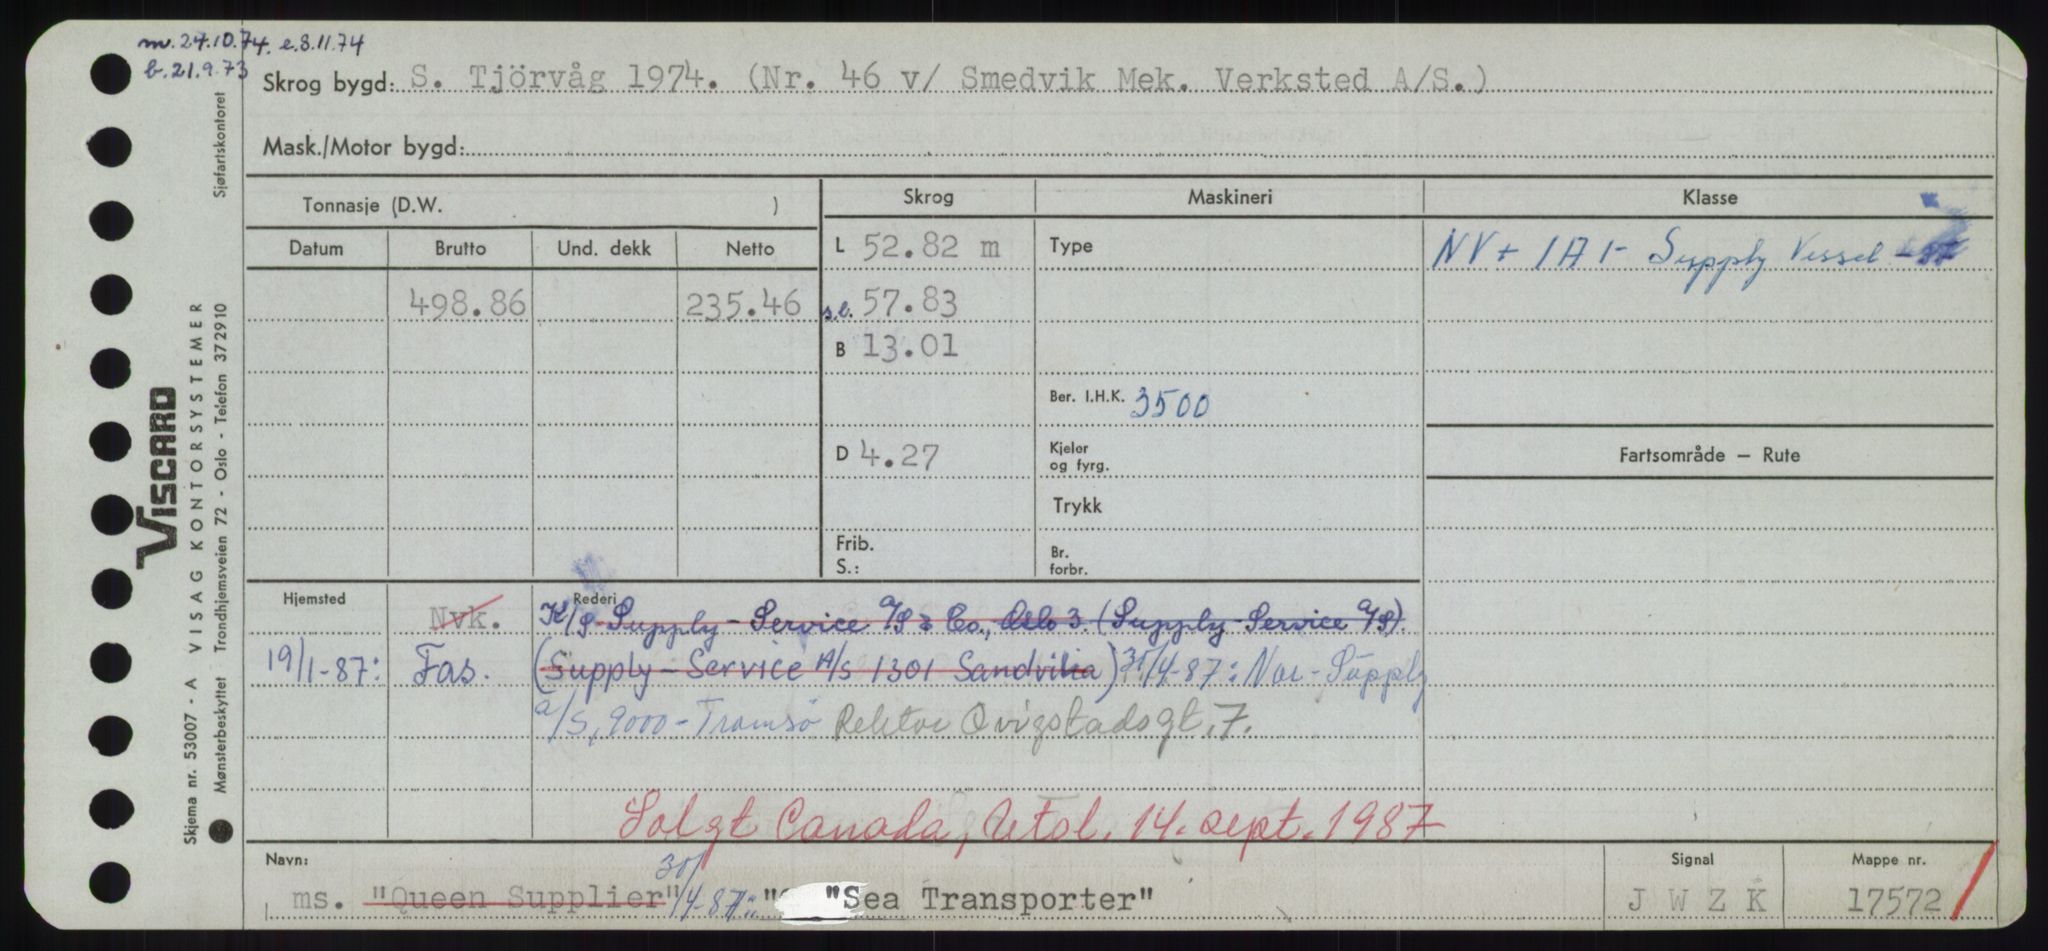 m. 24.10.74. e.8.11.74
b.21.9.73
Skrog bygd: S. Tjörvåg 1974. (Nr. 46 v/ Smedvik Mek. Verksted A/S.)
Mask./Motor bygd:
Tonnasje (D.W. )
Skrog Maskineri Klasse
Datum Brutto Und. dekk Netto
L 52.82 m Type NV + 1A1- Supply Vessel
498.86 235.46 s.l. 57.83
B 13.01
Ber. I.H.K. 3500
D 4.27 Kjeler og fyrg.
Fartsområde — Rute
Trykk
Frib.
S.:
Br. forbr.
Hjemsted Rederi
Nvk. K/S Supply-Service A/S & Co., Oslo 3. (Supply-Service A/S).
19/1-87: Fas. (Supply-Service A/S 1301 Sandvika) 31/4-87: Nor-Supply
a/S, 9000-Tromsö Rektor Qvigstadsgt. 7.
Solgt Canada, Utsl. 14. sept. 1987
Navn: Signal Mappe nr.
ms. "Queen Supplier" 30/4-87: " "Sea Transporter" J W Z K 17572
Skjema nr. 53007 - A VISAG KONTORSYSTEMER
Mønsterbeskyttet Trondhjemsveien 72 - Oslo - Telefon 372910 Sjøfartskontoret
VISCARD